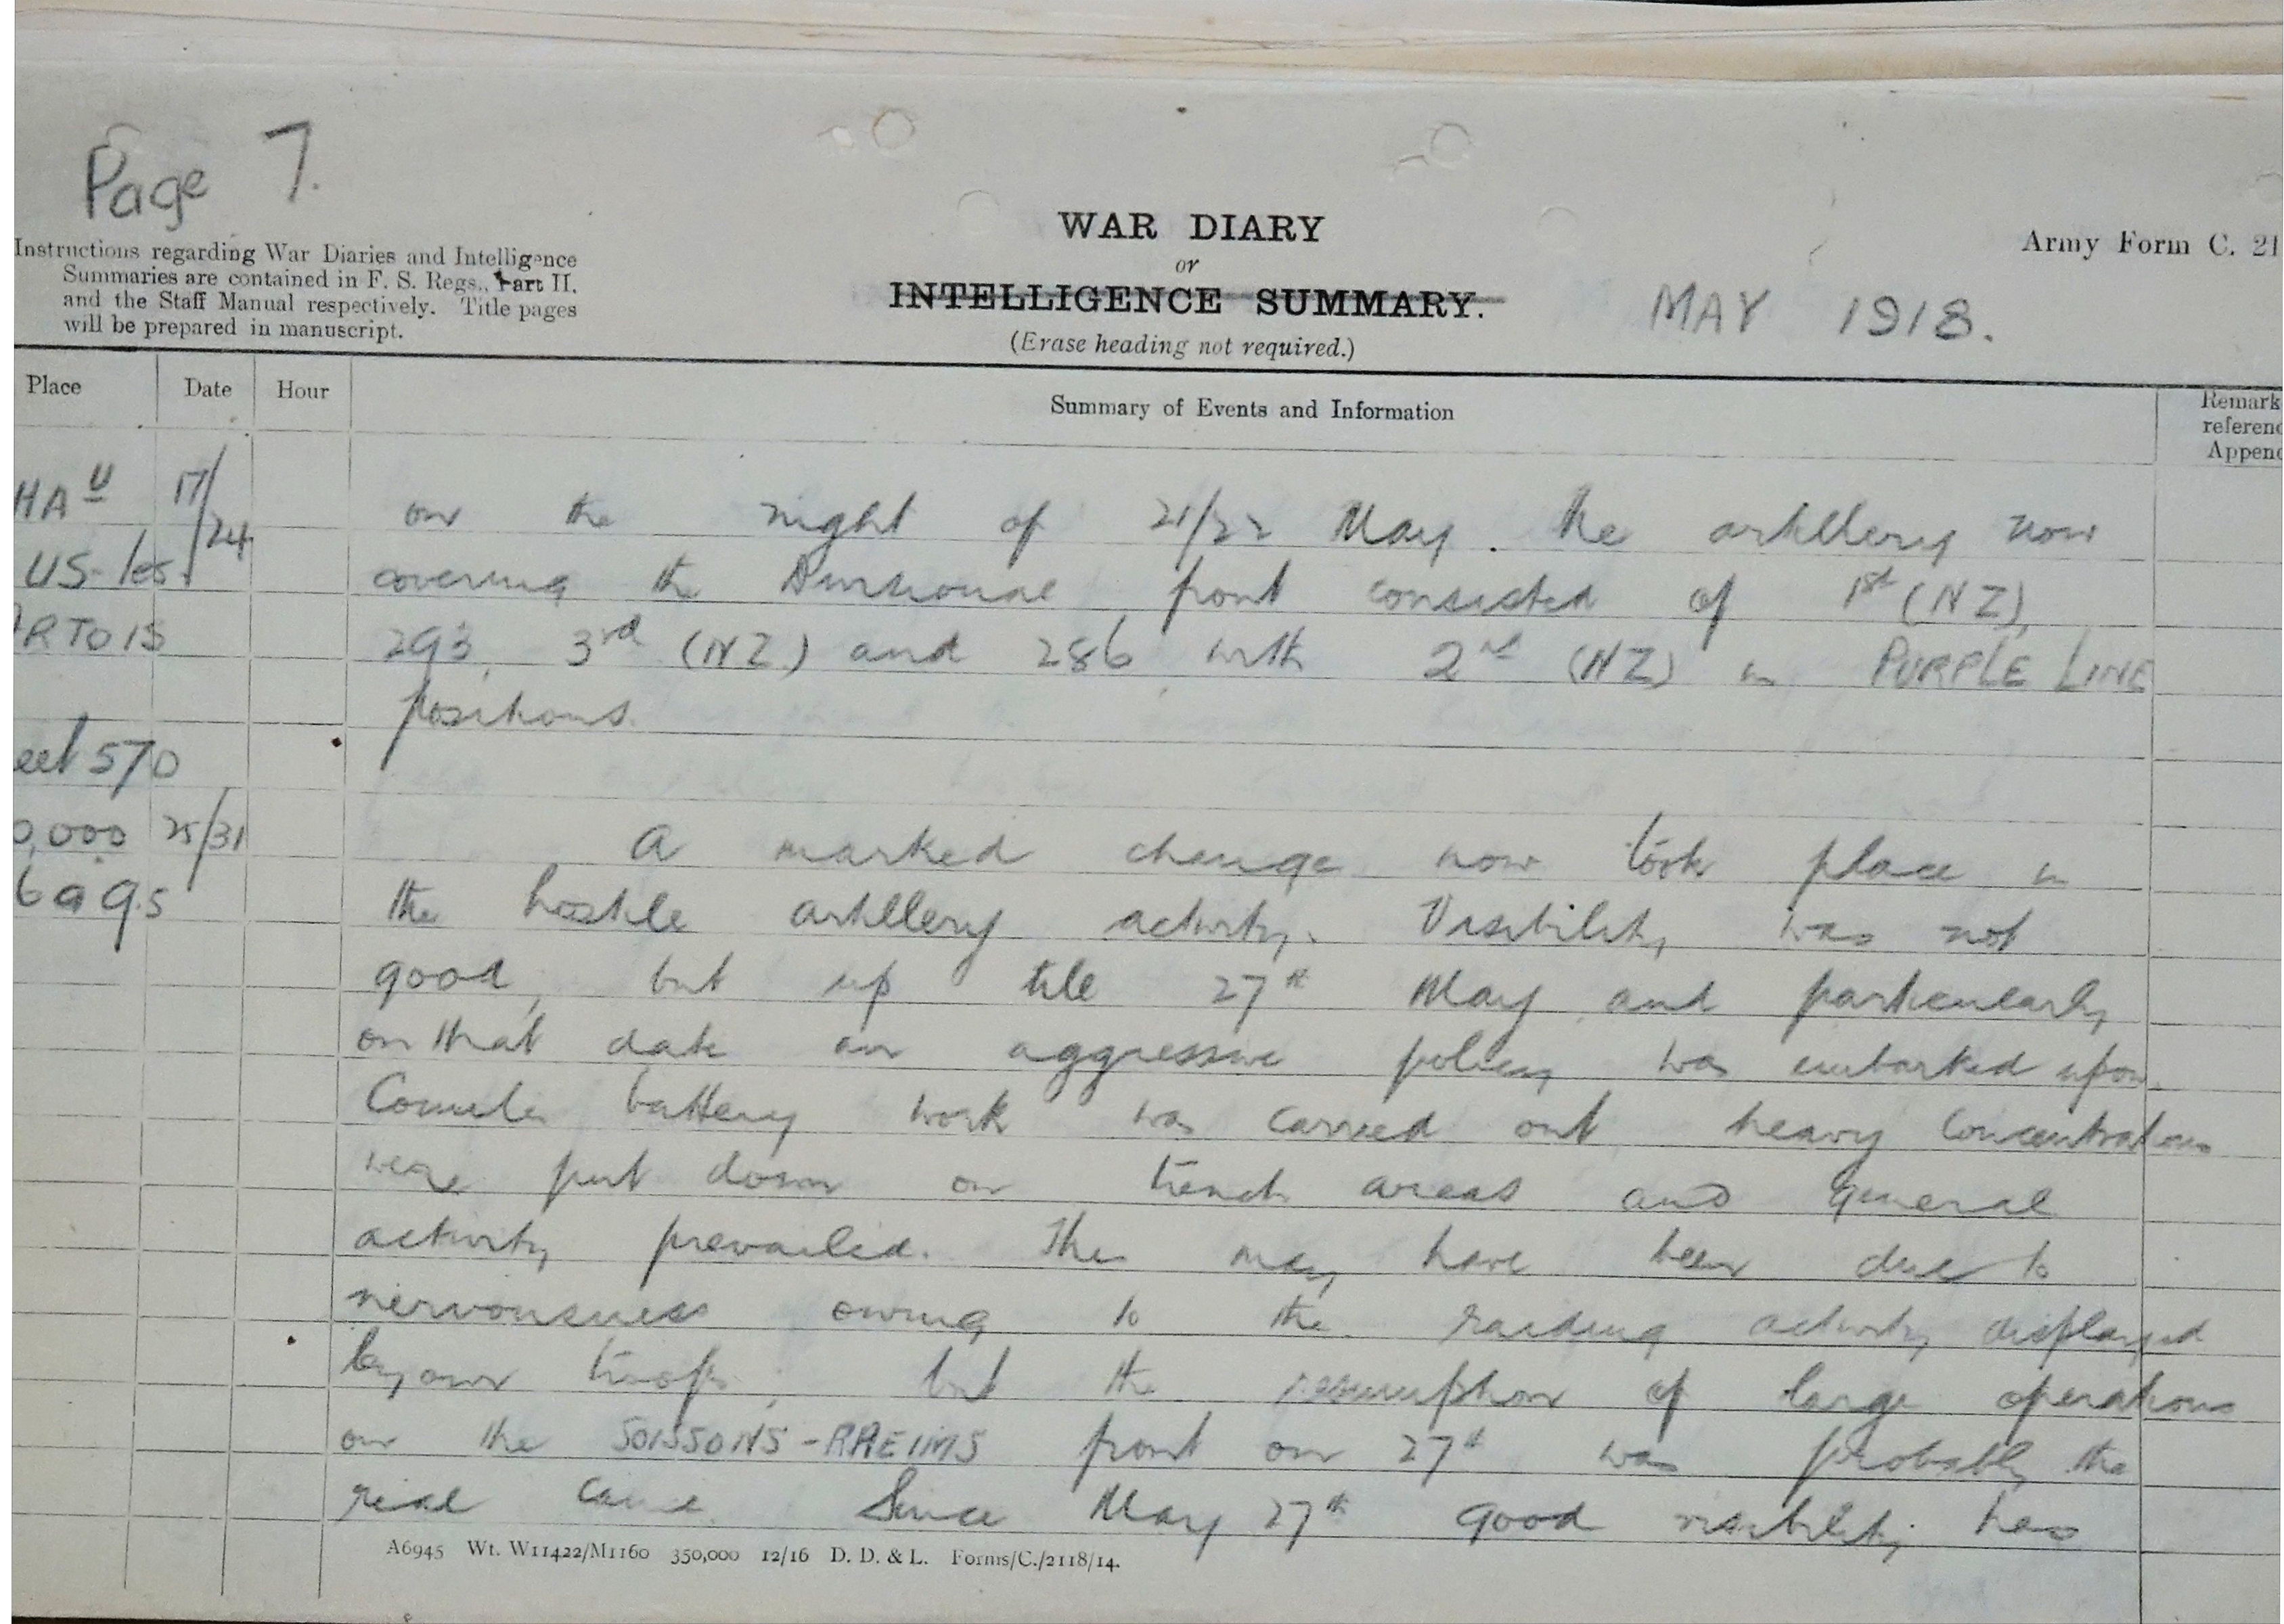 Page 7.
Instructions regarding War Diaries and Intelligence
Summaries are contained in F. S. Regs., Part II.
and the Staff Manual respectively. Title pages
will be prepared in manuscript.
WAR DIARY
or
INTELLIGENCE SUMMARY.
(Erase heading not required.)
Army Form C. 21
MAY 1918.
Place
Date
Hour
Summary of Events and Information
Remark
referenc
Append
HAU 17/24
US-les-
ARTOIS
eet 57D
0,000 25/31
6a9.5
on the night of 21/22 May. The artillery now
covering the Divisional front consisted of 1st (NZ),
293, 3rd (NZ) and 286 with 2nd (NZ) in PURPLE LINE
positions.
A marked change now took place in
the hostile artillery activity. Visibility was not
good, but up till 27th May and particularly
on that date an aggressive policy was embarked upon.
Counter battery work was carried out heavy concentrations
were put down on trench areas and general
activity prevailed. This may have been due to
nervousness owing to the raiding activity displayed
by our troops, but the resumption of large operations
on the SOISSONS-RHEIMS front on 27th was probably the
real cause. Since May 27th good visibility has
A6945 Wt. W11422/M1160 350,000 12/16 D. D. & L. Forms/C./2118/14.